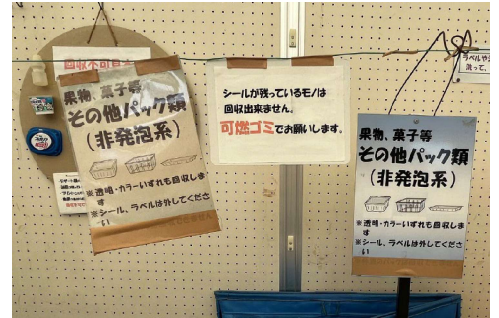 回収不可
果物、菓子等
その他パック類
（非発泡系）
※透明・カラーいずれも回収しま
す
※シール、ラベルは外してくださ
い
シールが残っているモノは
回収出来ません。
可燃ゴミでお願いします。
ラベルや
洗って、
果物、菓子等
その他パック類
（非発泡系）
※透明・カラーいずれも回収しま
す
※シール、ラベルは外してくださ
い